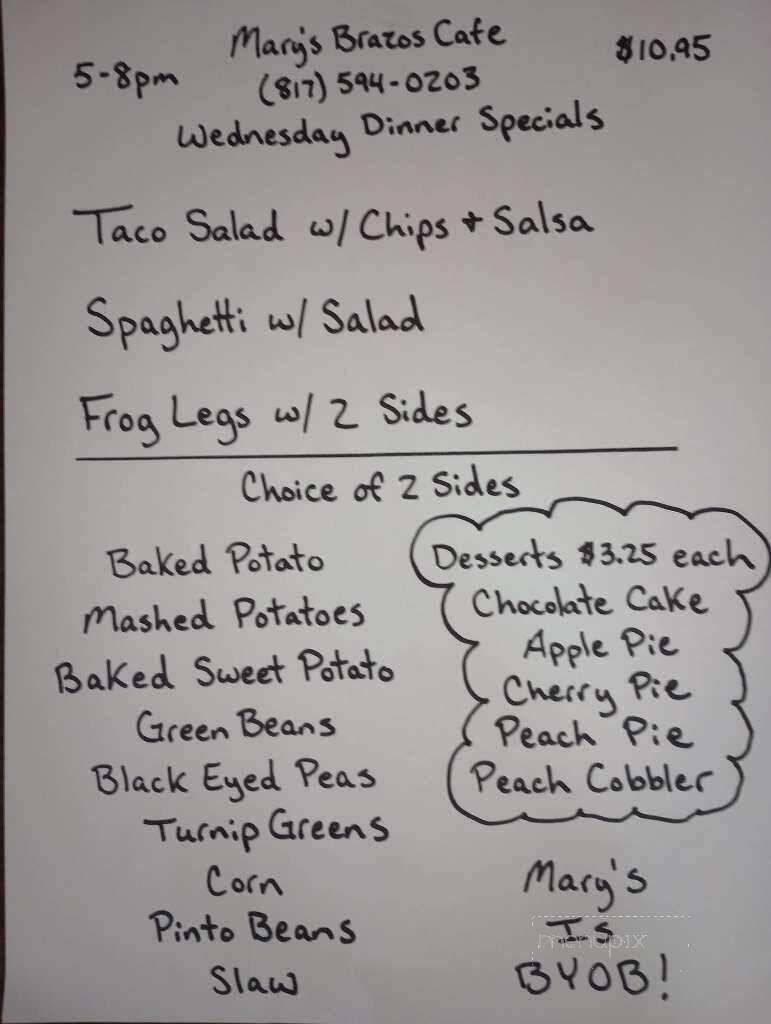 Mary's Brazos Cafe
5-8pm
$10.95
(817) 594-0203
Wednesday Dinner Specials
Taco Salad w/ Chips + Salsa
Spaghetti w/ Salad
Frog Legs w/ 2 Sides
Choice of 2 Sides
Baked Potato
Mashed Potatoes
Baked Sweet Potato
Green Beans
Black Eyed Peas
Turnip Greens
Corn
Pinto Beans
Slaw
Desserts $3.25 each
Chocolate Cake
Apple Pie
Cherry Pie
Peach Pie
Peach Cobbler
Mary's
Is
BYOB!
menupix